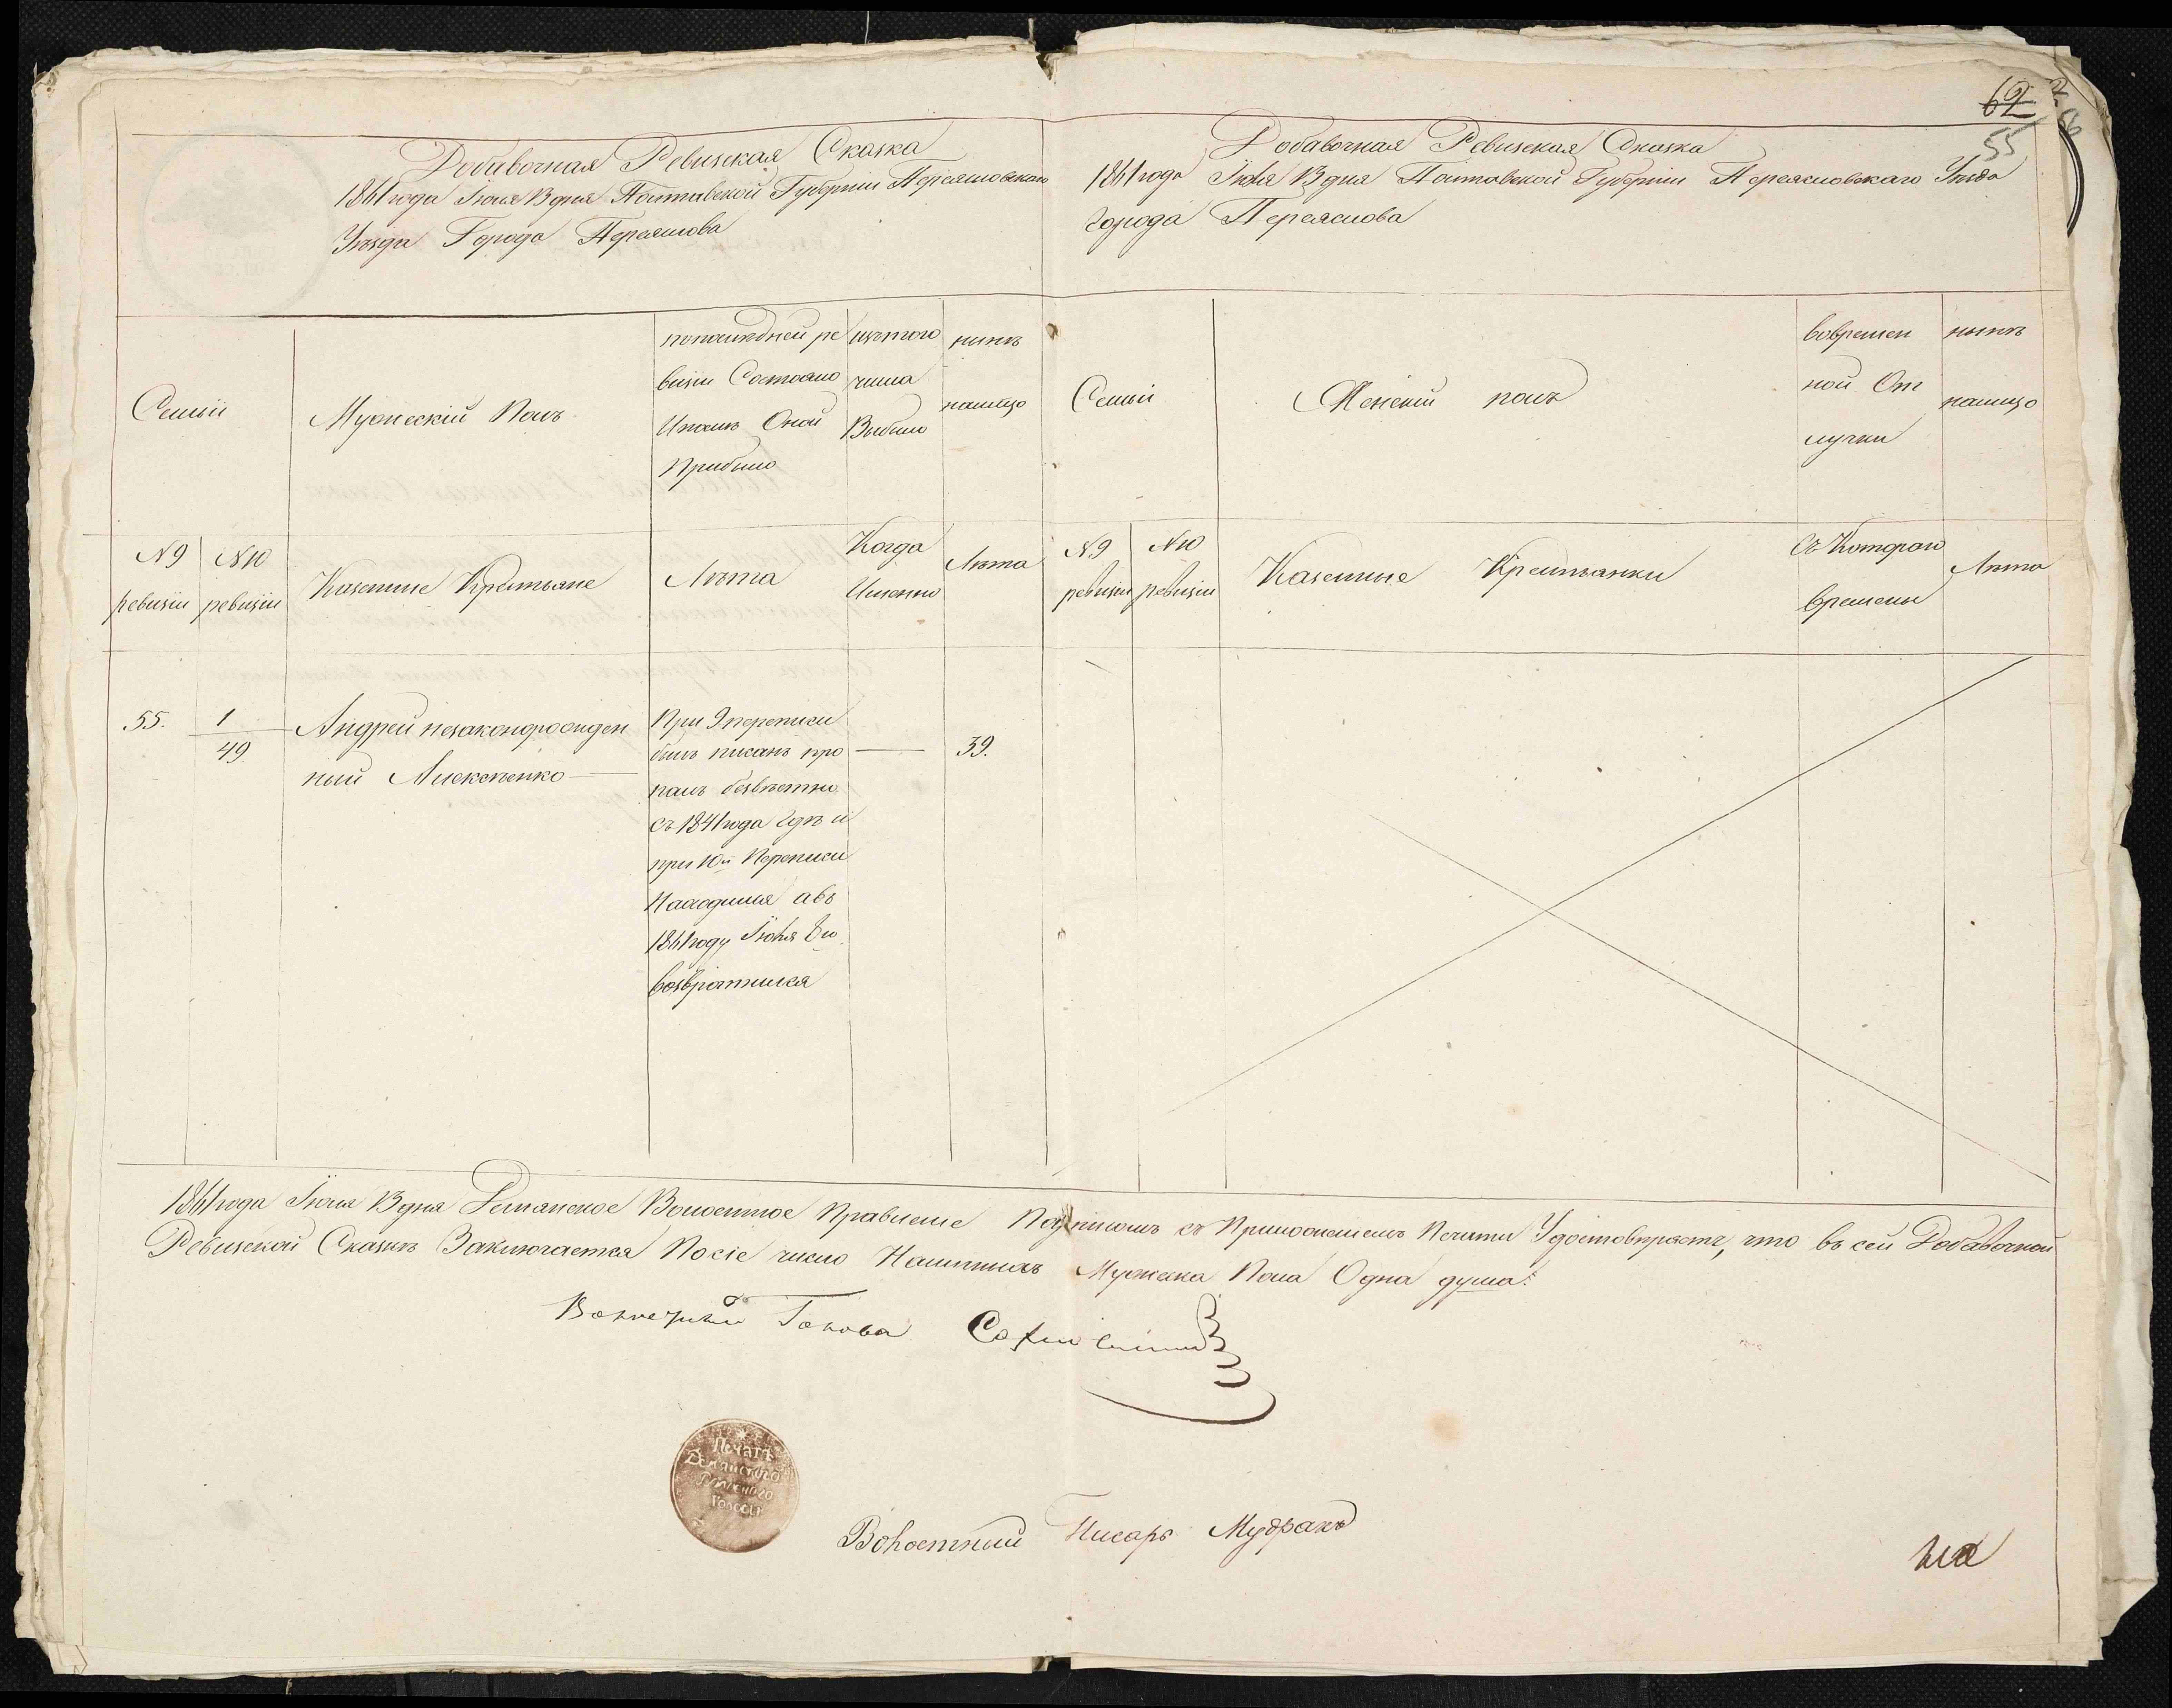 62
55
Добавочная Ревизская Сказка
1861 года Іюля 13 дня Полтавской Губерніи Переясловскаго
Уѣзда Города Переяслова
Добавочная Ревизская Сказка
1861 года Іюля 13 дня Полтавской Губерніи Переясловскаго Уѣзда
города Переяслова
Семьи
Мужескій Полъ
попослѣдней ре
визіи Состояло
Ипослѣ Оной
Прибыло
изътого
числа
Выбыло
нынѣ
налицо
Семьи
Женскій полъ
вовремен
ной От
лучки
нынѣ
налицо
N 9
ревизіи
N 10
ревизіи
Казенные Крестьяне
Лѣта
Когда
Имянно
Лѣта
N 9
ревизіи
N 10
ревизіи
Казенные Крестьянки
Съ Котораго
времены
Лѣта
55.
1
49
Андрей незаконорожден
ный Алексѣенко
При 9 переписи
былъ писанъ про
палъ безвѣстно
съ 1841 года гдѣ и
при 10й Переписи
Находился авъ
1861 году Іюля 8го
возвратился
39.
1861 года Іюля 13 дня Демянское Волостное Правленіе Подписомъ съ Приложеніемъ Печати Удостовѣряетъ, что въ сей Добавочной
Ревизской Сказкѣ Заключается Посіе число Налицныхъ Мужеска Пола Одна душа.
Волостный Голова
Печать
Демянского
Волостный Писарь Мудракъ